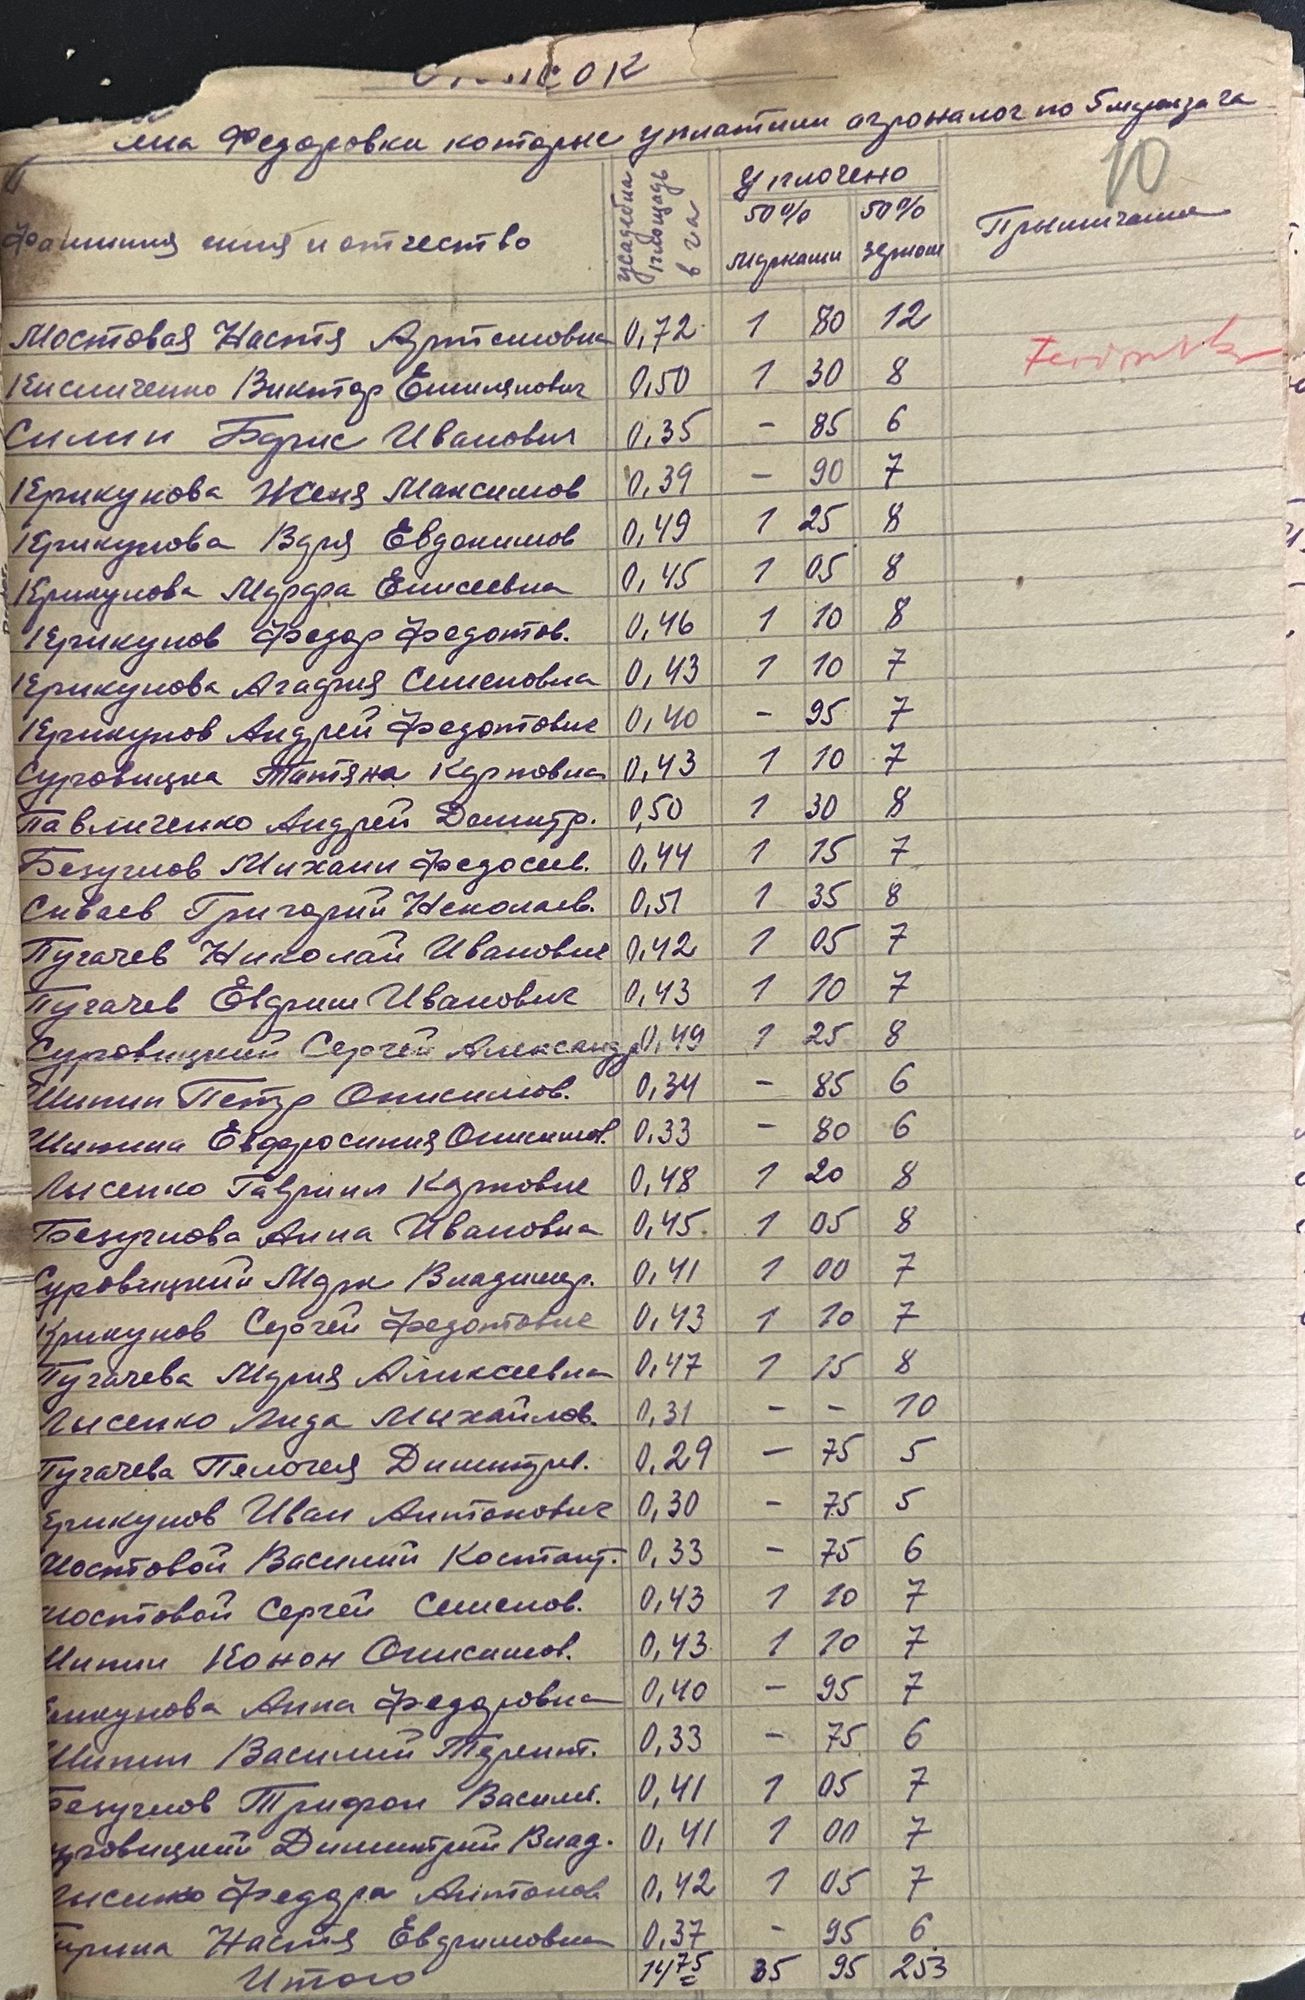 Список
Федоровки которые уплатили агроналог по 5 марок за га
10
Фамилия имя и отчество
усадебна площадь в га
Уплочено
50% марками
50% зерном
Прымичание
Мостовая Настя Артемовна 0,72 1 80 12
Кисличенко Виктор Емилянович 0,50 1 30 8
Силин Борис Иванович 0,35 - 85 6
Крикунова Женя Максимов 0,39 - 90 7
Крикунова Варя Евдокимов 0,49 1 25 8
Крикунова Марфа Елисеевна 0,45 1 05 8
Крикунов Федор Федотов. 0,46 1 10 8
Крикунова Агафия Семеновна 0,43 1 10 7
Крикунов Андрей Федотович 0,40 - 95 7
Суровицка Татяна Карповна 0,43 1 10 7
Павличенко Андрей Демитр. 0,50 1 30 8
Безуглов Михаил Федосеев. 0,44 1 15 7
Сиваев Григорий Неколаев. 0,51 1 35 8
Пугачев Николай Иванович 0,42 1 05 7
Пугачев Ефрим Иванович 0,43 1 10 7
Суровицкий Сергей Александр 0,49 1 25 8
Шипин Петр Онисимов. 0,34 - 85 6
Шипина Евфросиния Онисимов. 0,33 - 80 6
Лысенко Гавриил Карпович 0,48 1 20 8
Безуглова Анна Ивановна 0,45 1 05 8
Суровицкий Марк Владимир. 0,41 1 00 7
Крикунов Сергей Федотович 0,43 1 10 7
Пугачева Мария Аликсеевна 0,47 1 15 8
Лысенко Лида Михайлов. 0,31 - - 10
Пугачева Пелогея Димитри. 0,29 - 75 5
Крикунов Иван Антонович 0,30 - 75 5
Мостовой Василий Костант. 0,33 - 75 6
Мостовой Сергей Семенов. 0,43 1 10 7
Шипин Конон Онисимов. 0,43 1 10 7
Крикунова Анна Федоровна 0,40 - 95 7
Шипин Василий Терент. 0,33 - 75 6
Безуглов Трифон Васили. 0,41 1 05 7
Суровицкий Димитрий Влад. 0,41 1 00 7
Лысенко Федора Антонов 0,42 1 05 7
Настя Ефримовна 0,37 - 95 6
Итого 14,75 35 95 253